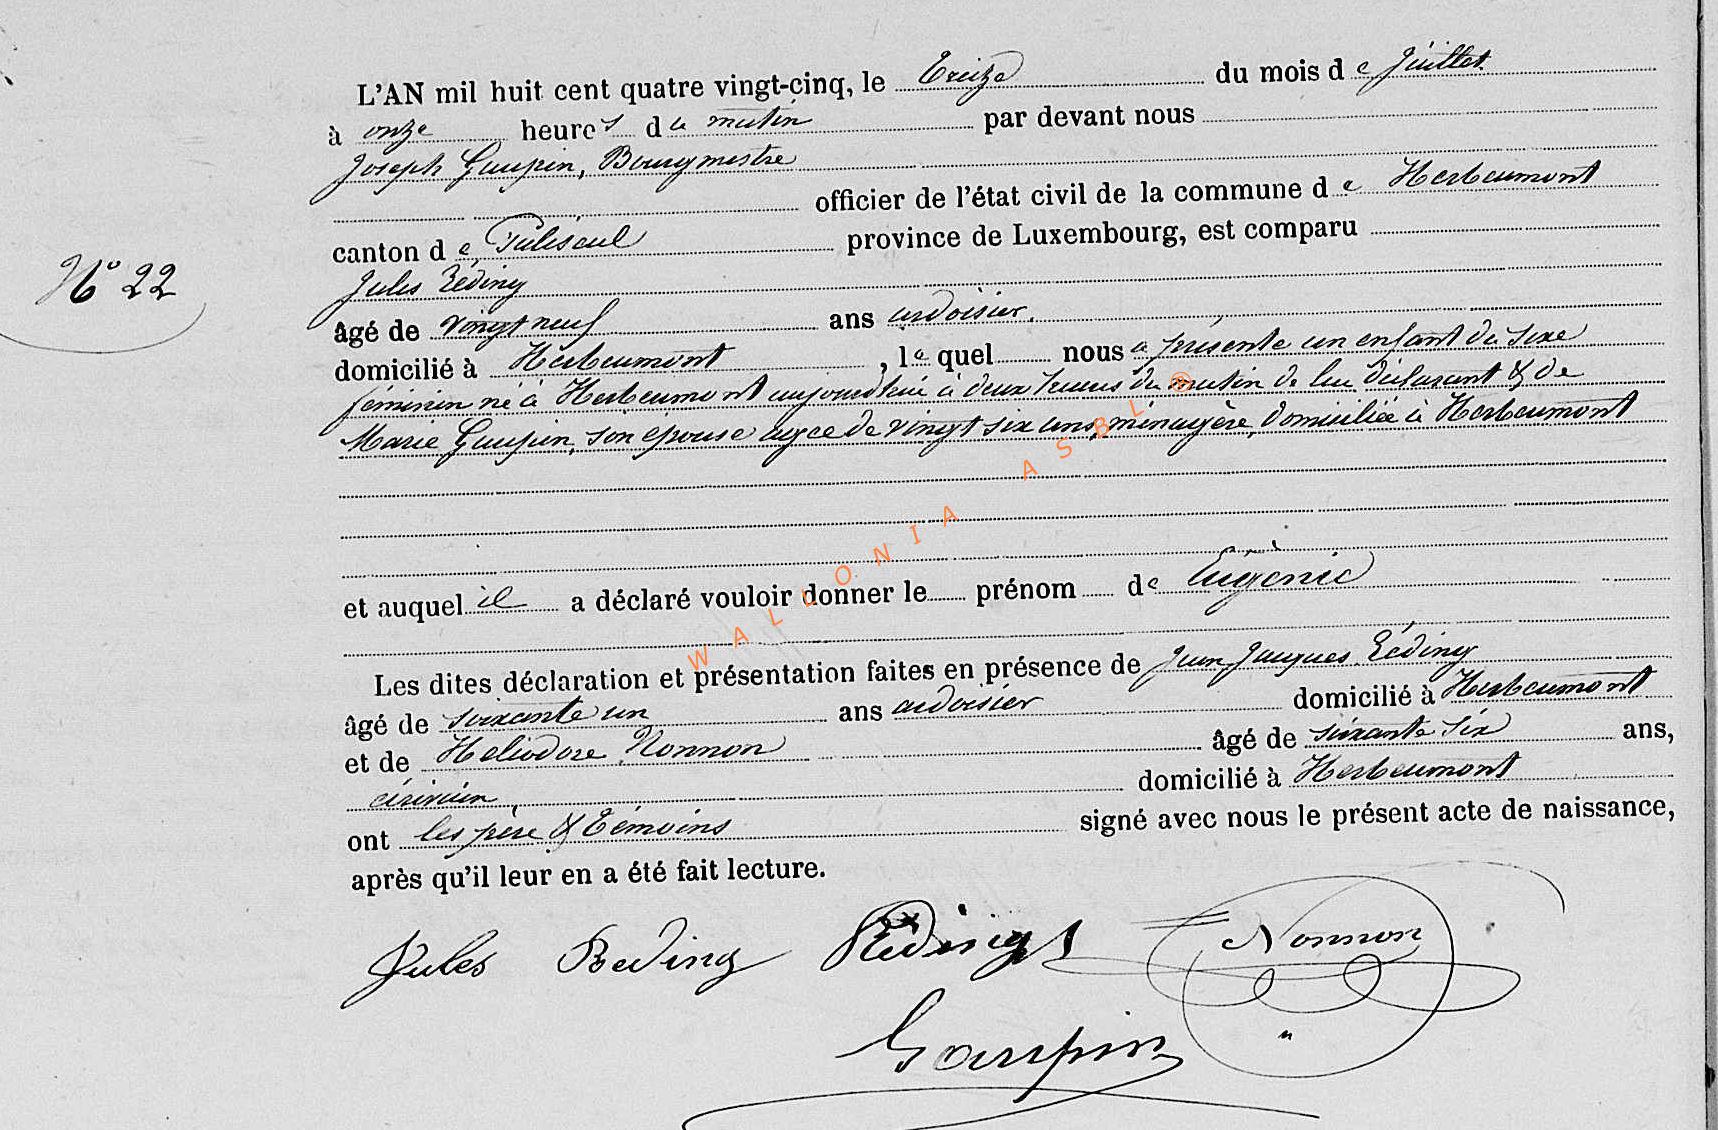 L'AN mil huit cent quatre vingt-cinq, le Treize du mois de Juillet
à onze heures du matin par devant nous
Joseph Gaupin, Bourgmestre
officier de l'état civil de la commune de Herbeumont
canton de Paliseul province de Luxembourg, est comparu
N° 22
Jules Réding
âgé de vingt neuf ans ardoisier.
domicilié à Herbeumont, lequel nous a présenté un enfant du sexe
féminin né à Herbeumont aujourd'hui à deux heures du matin de lui déclarant & de
Marie Gaupin, son épouse agée de vingt six ans, ménagère, domiciliée à Herbeumont
et auquel il a déclaré vouloir donner le prénom de Eugénie
Les dites déclaration et présentation faites en présence de Jean Jacques Réding
âgé de soixante un ans ardoisier domicilié à Herbeumont
et de Héliodore Nonnon âgé de soixante six ans,
domicilié à Herbeumont
ont les père & témoins signé avec nous le présent acte de naissance,
après qu'il leur en a été fait lecture.
Jules Reding Réding Nonnon
Gaupin
WALLONIA ASBL ®